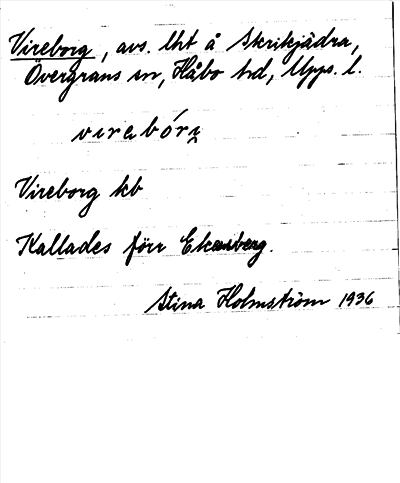 Vireborg, avs. lht å Skrikjädra,
Övergrans sn, Håbo hd, Upps. l.
Vireborg kb
Kallades förr Ekensberg.
Stina Holmström 1936